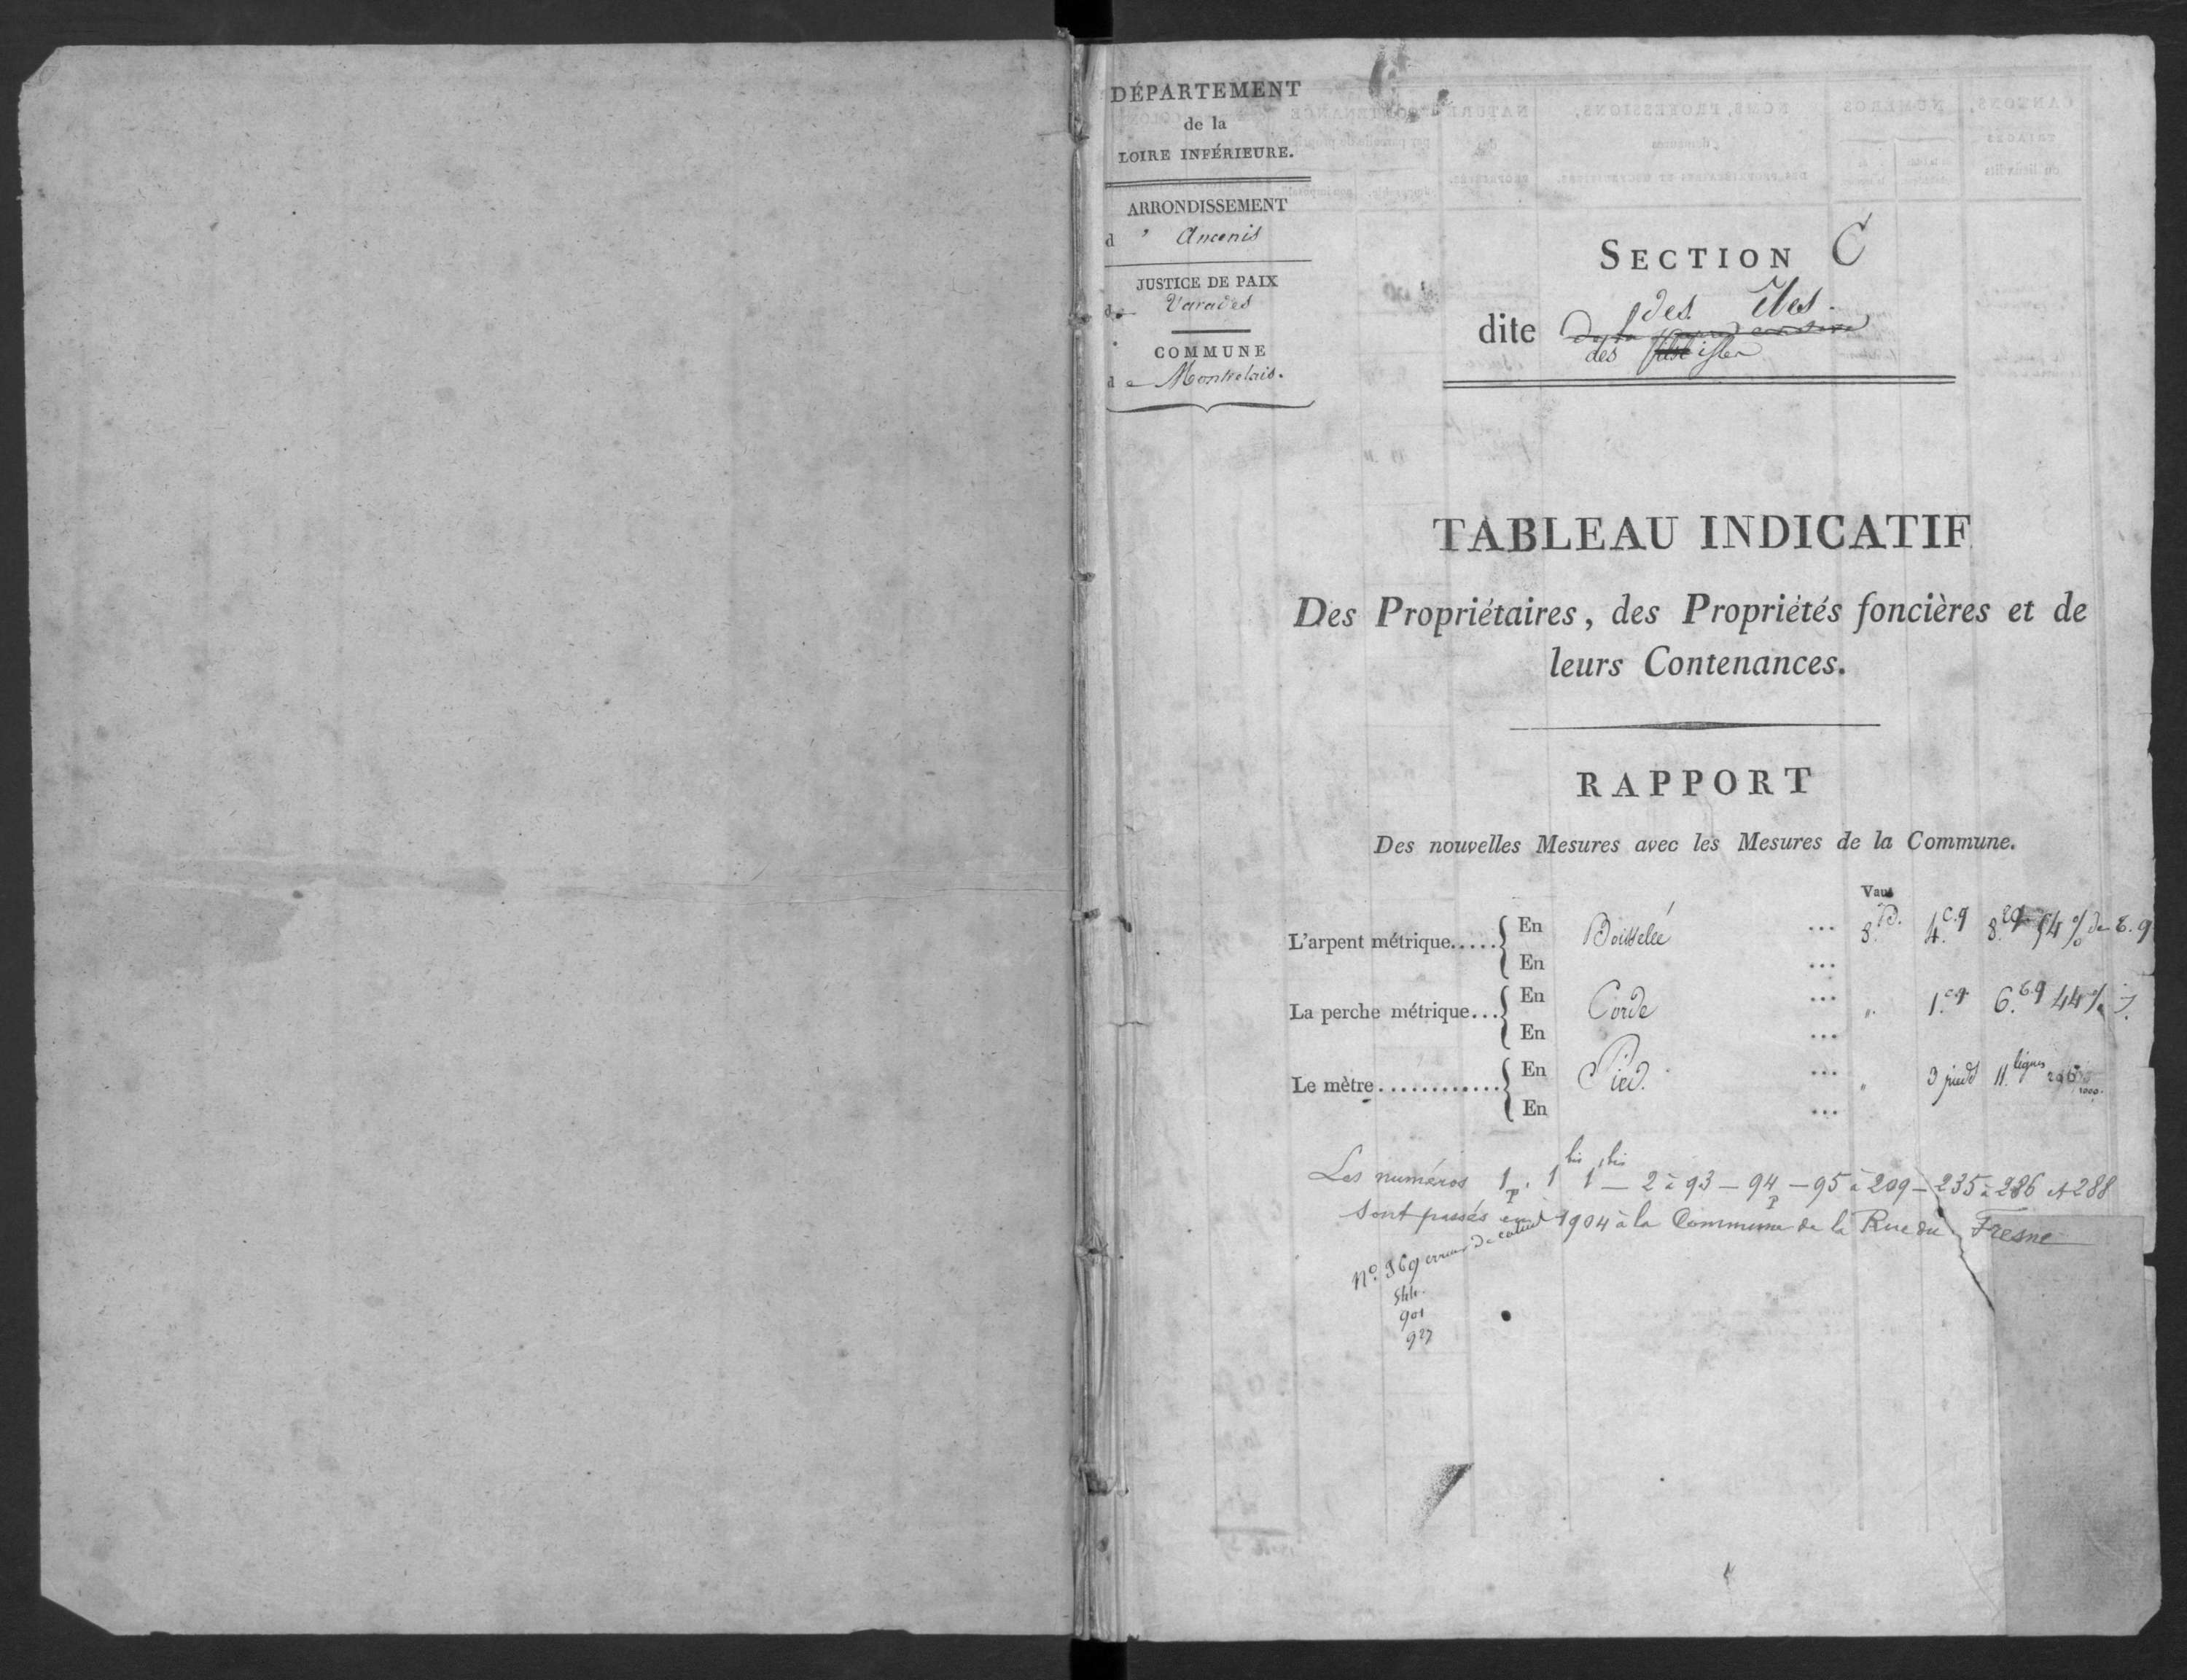 DÉPARTEMENT
de la
LOIRE INFÉRIEURE.
ARRONDISSEMENT
d ' Ancenis
JUSTICE DE PAIX
de Varades
COMMUNE
de Montrelais.
SECTION C
des Iles.
dite
des isles
TABLEAU INDICATIF
Des Propriétaires, des Propriétés foncières et de
leurs Contenances.
RAPPORT
Des nouvelles Mesures avec les Mesures de la Commune.
Vaut
L'arpent métrique..... { En Boisselée ... 8. 4. c.q 8.
En ...
La perche métrique... { En Corde ... " 1. c.q. 6. 44 %
En ...
Le mètre............ { En Pied. ... " 3 pieds 11. lignes 296/1000.
En ...
Les numéros 1p. 1 bis 1 bis — 2 à 93 — 94p — 95 à 209 — 235 à 286 et 288
sont passés en 1904 à la Commune de la Rue du Fresne
No. 369 erreur de calcul
544.
901
927